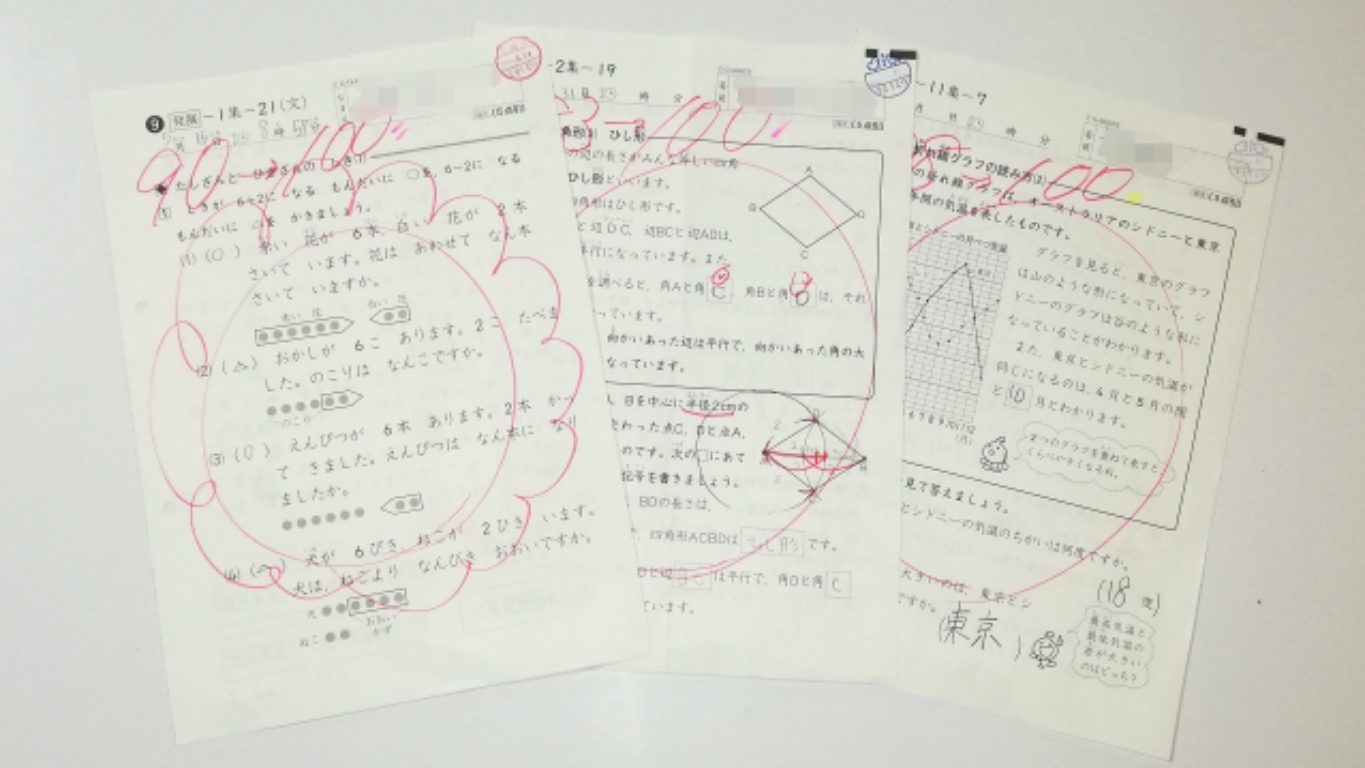 ❾ 発展-1集-21(文)
8時58分
90→100
たしざんと ひきざんの しき
① しきが 6+2に なる もんだいに ○を、6-2に なる
もんだいに △を かきましょう。
(1) (○) 赤い 花が 6本、白い 花が 2本
さいて います。花は あわせて なん本
さいて いますか。
赤い 花
白い 花
(2) (△) おかしが 6こ あります。2こ たべま
した。のこりは なんこですか。
のこり
(3) (○) えんぴつが 6本 あります。2本 かっ
て きました。えんぴつは なん本に なり
ましたか。
(4) (△) 犬が 6ぴき、ねこが 2ひき います。
犬は、ねこより なんびき おおいですか。
犬
おおい
かず
ねこ
-2集-19
31日
時 分
100
ひし形
の辺の長さがみんな等しい四角
ひし形といいます。
角形はひし形です。
と辺DC、辺BCと辺ADは、
平行になっています。また
を調べると、角Aと角C、角Bと角Dは、それ
っています。
向かいあった辺は平行で、向かいあった角の大
なっています。
A
B
D
C
、Bを中心に半径2cmの
まじわった点C、Dと点A、
のです。次の□にあて
記号を書きましょう。
BDの長さは、
四角形ACBDは ひし形 です。
Dと辺BCは平行で、角Dと角C
ています。
-11集-7
月 日 時 分
100
折れ線グラフの読み方(2)
の折れ線グラフは、オーストラリアのシドニーと東京
年間の気温を表したものです。
とシドニーの月べつ気温
グラフを見ると、東京のグラフ
は山のような形になっていて、シ
ドニーのグラフは谷のような形に
なっていることがわかります。
また、東京とシドニーの気温が
同じになるのは、4月と5月の間
と 10 月とわかります。
6 7 8 9 10 11 12
(月)
2つのグラフを重ねて表すと、
くらべやすくなるね。
見て答えましょう。
とシドニーの気温のちがいは何度ですか。
(18 度)
大きいのは、東京とシ
ですか。
(東京)
最高気温と
最低気温の
差が大きい
のはどっち?